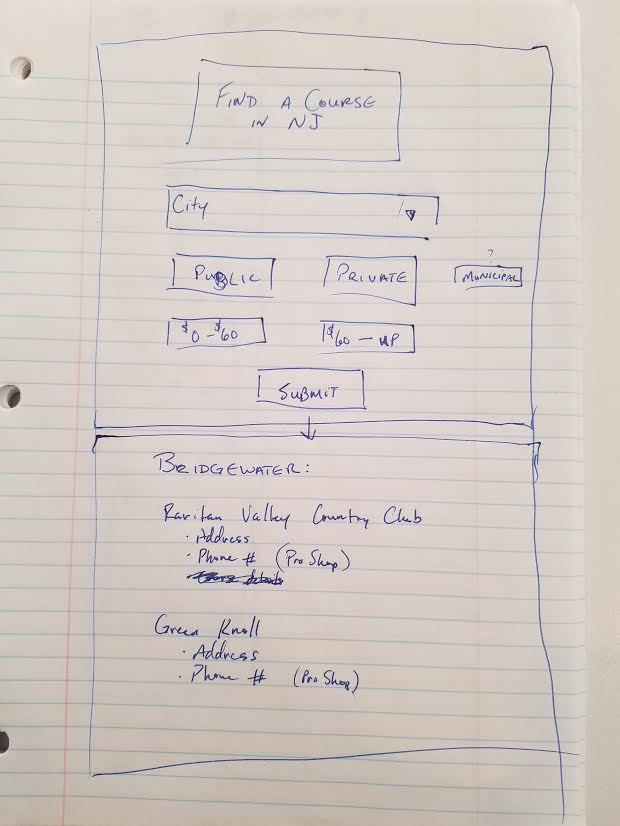 FIND A COURSE
IN NJ
City
PUBLIC PRIVATE ? MUNICIPAL
$0 - $60 $60 - UP
SUBMIT
BRIDGEWATER:
Raritan Valley Country Club
· Address
· Phone # (Pro Shop)
Green Knoll
· Address
· Phone # (Pro Shop)